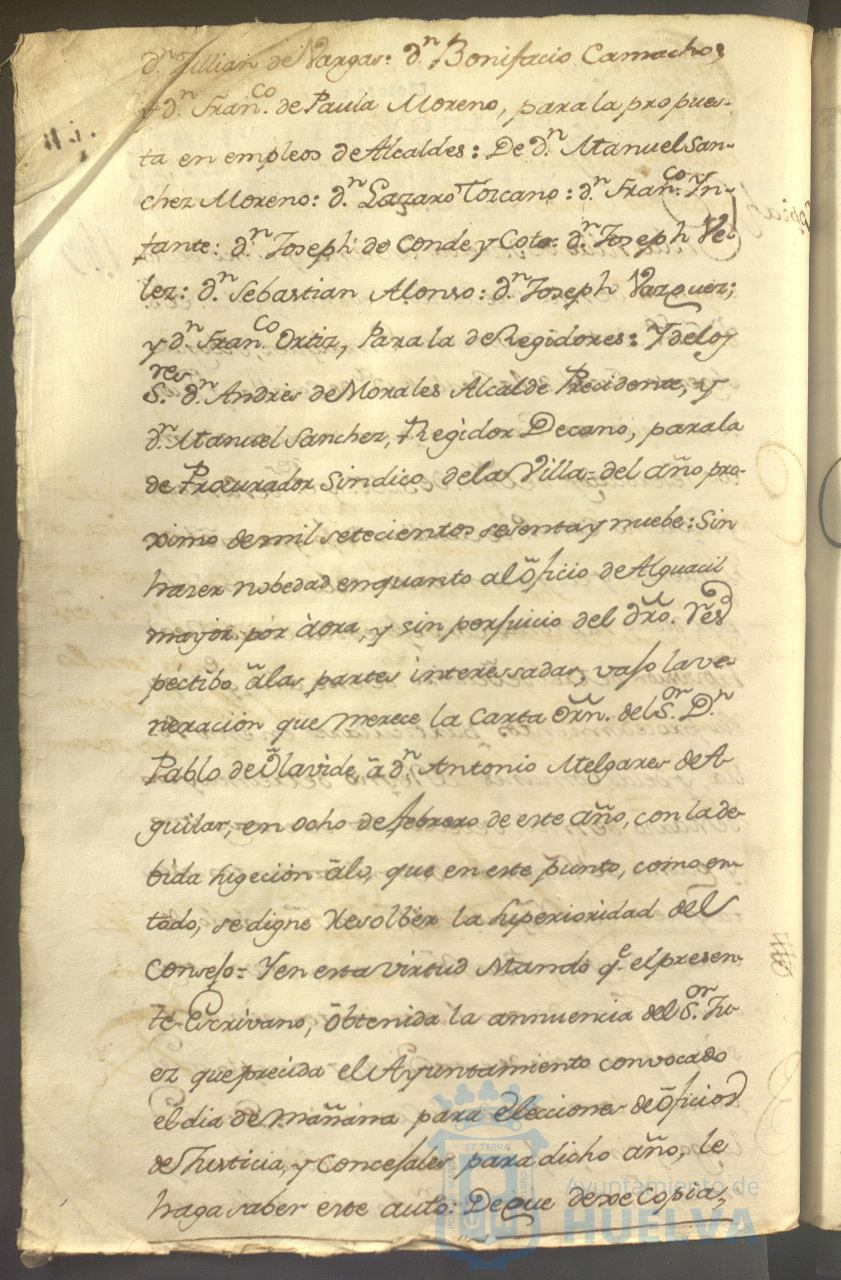 d.n Jullian de Vargas: d.n Bonifacio Camacho;
y d.n Fran.co de Paula Moreno, para la propues-
ta en empleos de Alcaldes: De d.n Manuel San-
chez Moreno: d.n Lazaro Toscano: d.n Fran.co In-
fante: d.n Joseph de Conde y Coto: d.n Joseph Ve-
lez: d.n Sebastian Alonso: d.n Joseph Vazquez;
y d.n Fran.co Ortiz, Para la de Regidores: Y de los
S.res d.n Andres de Morales Alcalde Precidente, y
d.n Manuel Sanchez, Regidor Decano, para la
de Procurador Sindico de la Villa = del año pro-
ximo de mil setecientos sesenta y nuebe: Sin
hazer nobedad en quanto al oficio de Alguacil
mayor por áora, y sin perjuicio del dro. res
péctibo á las partes interessadas, vajo la ve-
neración que merece la Carta órn. del S.or D.n
Pablo de Olavide, á d.n Antonio Melgares de A-
guilar, en ocho de febrero de este año, con la de-
bida sugeción á lo, que en este punto, como en
todo, se digne Resolber la superioridad del
Consejo = Y en esta virtud Mando q.e el presen-
te Escrivano, obtenida la annuencia del S.or Ju-
ez que precida el Ayuntamiento convocado
el dia de mañana para elecciones de oficios
de Justicia, y Concejales para dicho año, le
haga saber este auto: De que dexe Copia,
Ayuntamiento de
HUELVA